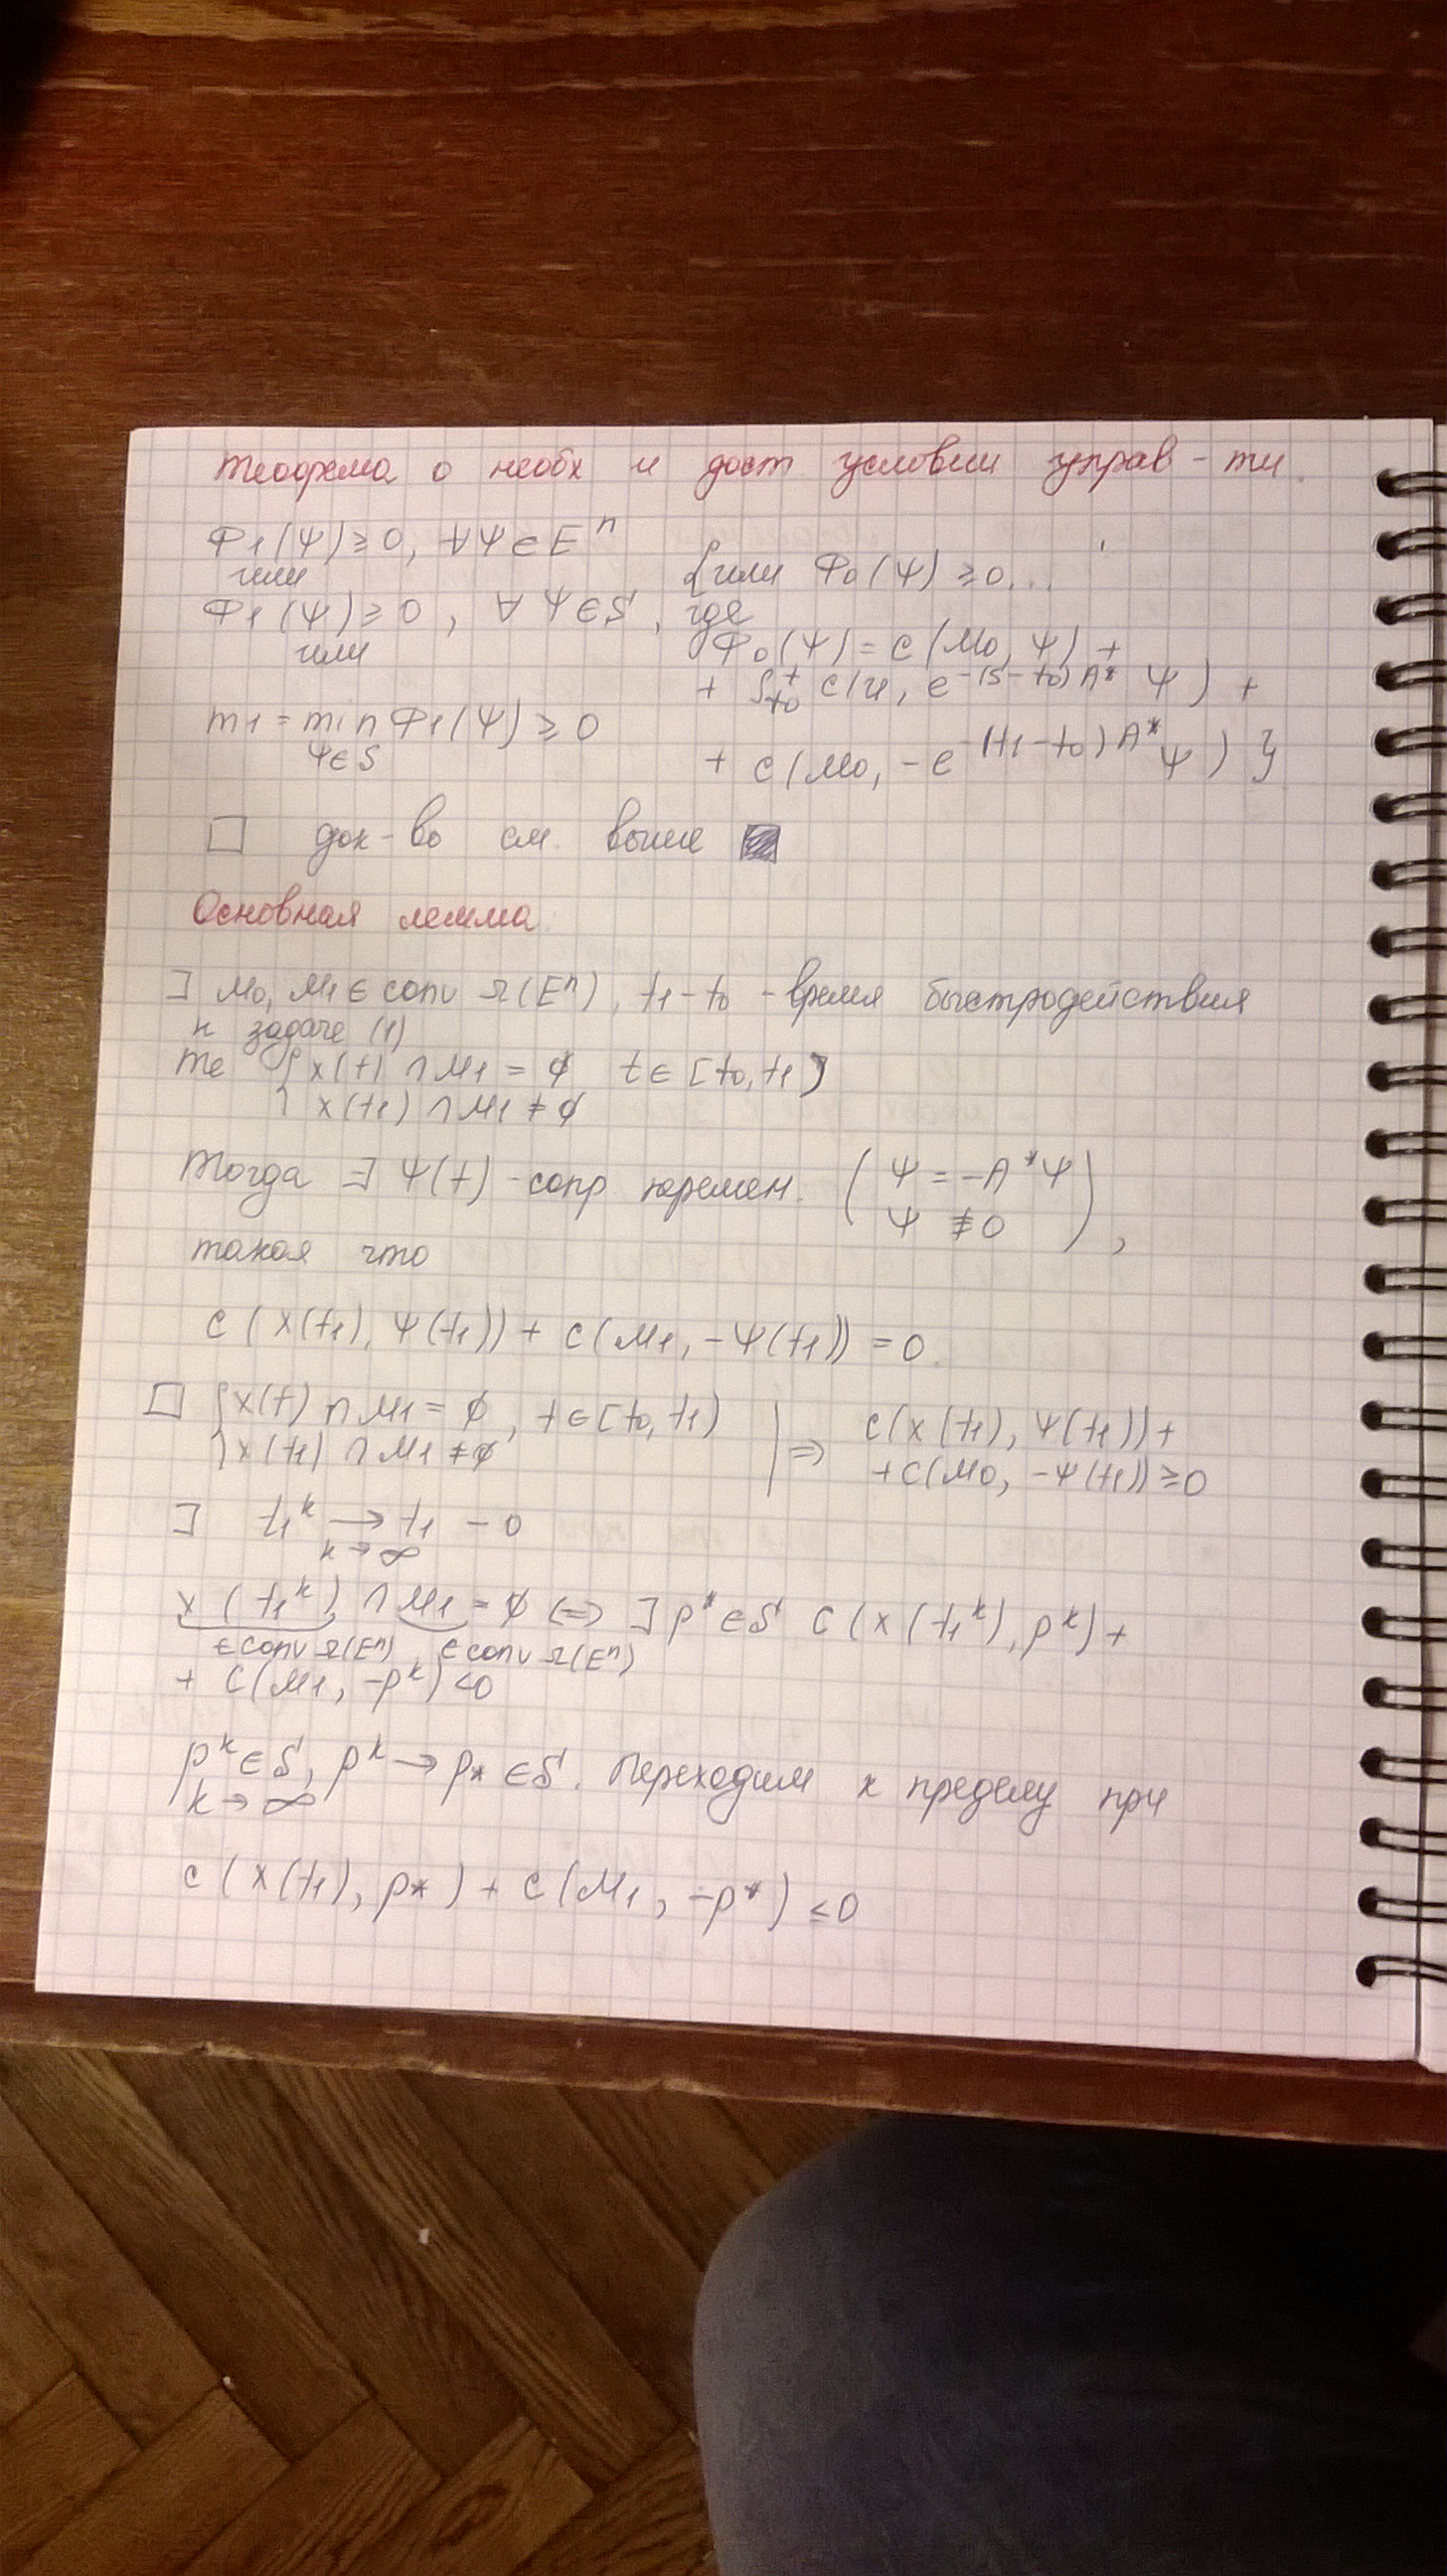 Теорема о необх и дост условии управ-ти.
Ф1(Ψ) ≥ 0, ∀Ψ ∈ E^n
или
{или Ф0(Ψ) ≥ 0...
Ф1(Ψ) ≥ 0, ∀Ψ ∈ S, где
или
Ф0(Ψ) = c(M0, Ψ) +
+ ∫_{t0}^{t} c(U, e^{-(s-t0)A*} Ψ) +
m1 = min Ф1(Ψ) ≥ 0
Ψ∈S
+ c(M0, -e^{-(t1-t0)A*} Ψ) }
□ док-во см. выше ■
Основная лемма.
∃ M0, M1 ∈ conv Ω(E^n), t1-t0 - время быстродействия
к задаче (1)
те { x(t) ∩ M1 = ∅ t ∈ [t0, t1)
x(t1) ∩ M1 ≠ ∅
Тогда ∃ Ψ(t) - сопр перемен. ( Ψ = -A*Ψ
Ψ ≢ 0 ),
такая что
c(x(t1), Ψ(t1)) + c(M1, -Ψ(t1)) = 0.
□ { x(t) ∩ M1 = ∅, t ∈ [t0, t1)
x(t1) ∩ M1 ≠ ∅
| ⇒ c(x(t1), Ψ(t1)) +
+ c(M0, -Ψ(t1)) ≥ 0
∃ t1^k → t1 - 0
k→∞
x(t1^k) ∩ M1 = ∅ ⇔ ∃ p^* ∈ S c(x(t1^k), p^k) +
∈ conv Ω(E^n), ∈ conv Ω(E^n)
+ c(M1, -p^k) < 0
p^k ∈ S, p^k → p* ∈ S. Переходим к пределу при
k → ∞
c(x(t1), p*) + c(M1, -p*) ≤ 0